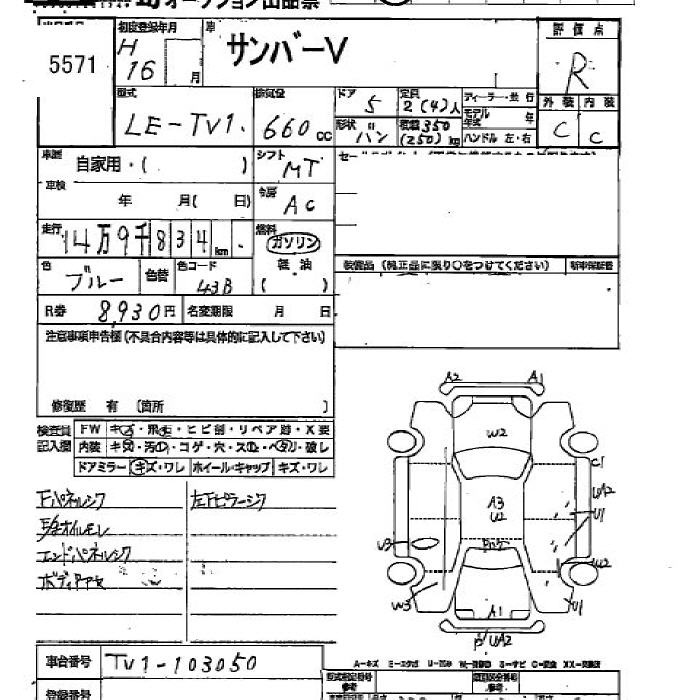 オークション出品票
5571
初度登録年月
H 16 月
車
サンバーV
評価点
R
型式
LE-TV1.
排気量
660 cc
ドア 5
定員 2(4)人
ディーラー・並行
モデル年式 年
形状 バン
積載 350 (250) kg
ハンドル 左・右
外装 内装
C C
車歴
自家用・( )
シフト
MT
車検
年 月( 日)
冷房
AC
走行
14万9千834km.
燃料
ガソリン
軽油
( )
装備品 (純正品に限り○をつけてください)
新車保証書
色
ブルー
色替
色コード
43B
R券 8,930円
名変期限 月 日
注意事項申告欄(不具合内容等は具体的に記入して下さい)
修復歴 有 〔箇所 〕
検査員記入欄
FW キズ・飛石・ヒビ割・リペア跡・X要
内装 キズ・汚れ・コゲ・穴・スレ・ベタリ・破レ
ドアミラー キズ・ワレ ホイール・キャップ キズ・ワレ
Fパネルシワ
左Fピラーシワ
エンドパネルシワ
A2 A1
W2
C1
A3
U2
UA2
U1
U3
W2
W3
A1
U1
UA2
車台番号 TV1-103050
登録番号